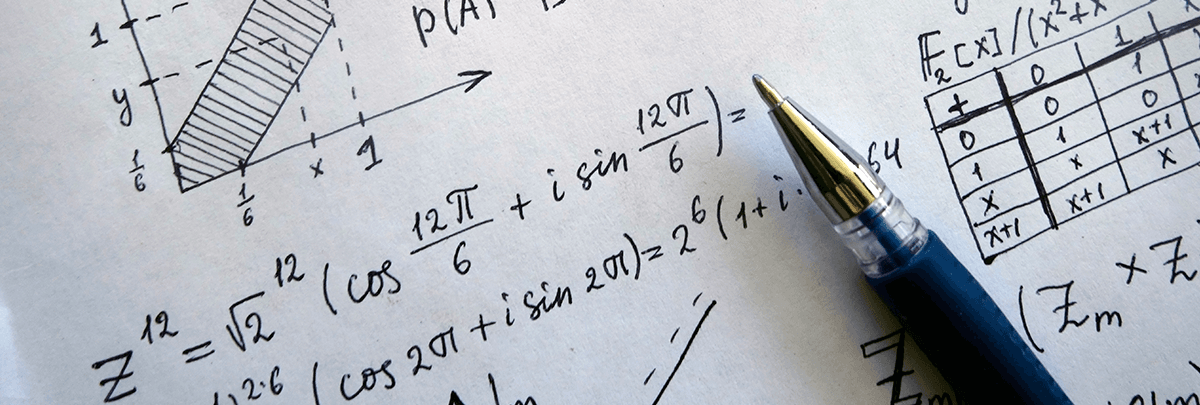 P(A)
1
y
1/6
1/6
x
1
z^12 = √2^12 (cos 12π/6 + i sin 12π/6) =
2·6 (cos 2π + i sin 2π) = 2^6 (1 + i· 64
F_2[x]/(x^2+x
+ 0 1
0 0
1 1 0
x x x+1
x+1 x+1 x
(Z_m × Z
Z_m